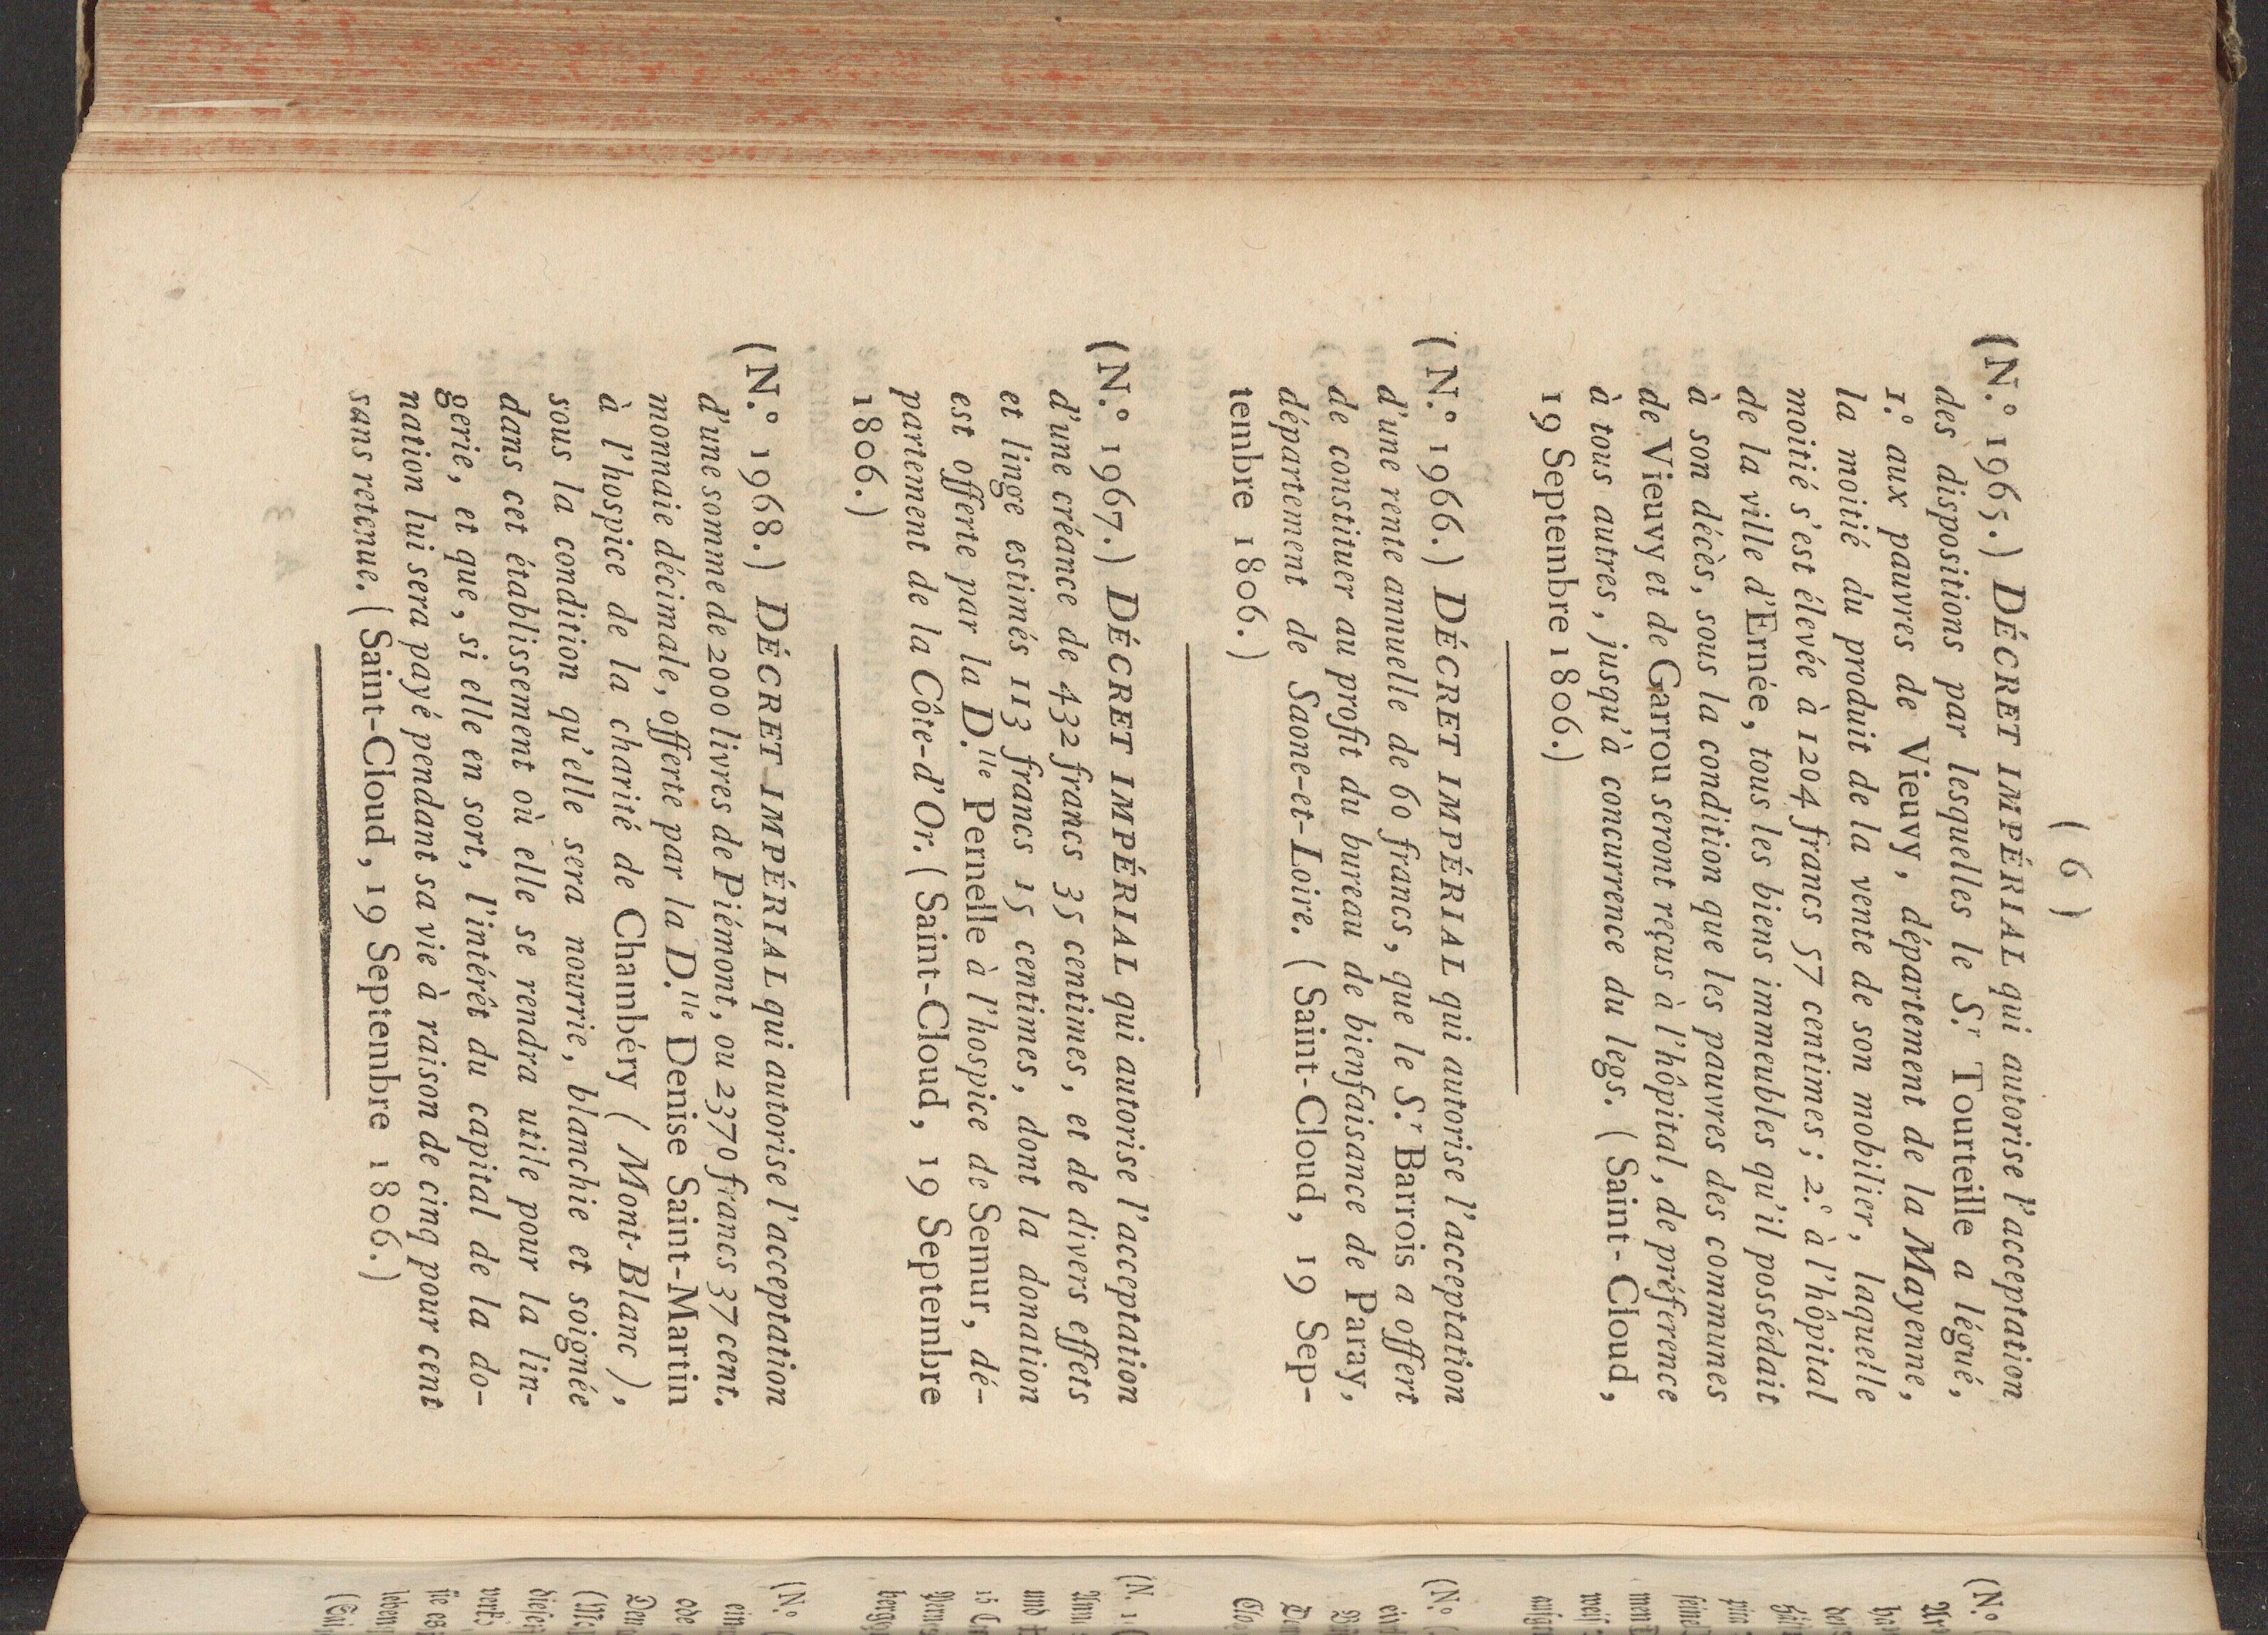 ( 6 )
(N.° 1965.) DÉCRET IMPÉRIAL qui autorise l'acceptation
des dispositions par lesquelles le S.r Tourteille a légué,
1.° aux pauvres de Vieuvy, département de la Mayenne,
la moitié du produit de la vente de son mobilier, laquelle
moitié s'est élevée à 1204 francs 57 centimes; 2.° à l'hôpital
de la ville d'Ernée, tous les biens immeubles qu'il possédait
à son décès, sous la condition que les pauvres des communes
de Vieuvy et de Garrou seront reçus à l'hôpital, de préférence
à tous autres, jusqu'à concurrence du legs. (Saint-Cloud,
19 Septembre 1806.)
(N.° 1966.) DÉCRET IMPÉRIAL qui autorise l'acceptation
d'une rente annuelle de 60 francs, que le S.r Barrois a offert
de constituer au profit du bureau de bienfaisance de Paray,
département de Saone-et-Loire. (Saint-Cloud, 19 Sep-
tembre 1806.)
(N.° 1967.) DÉCRET IMPÉRIAL qui autorise l'acceptation
d'une créance de 432 francs 35 centimes, et de divers effets
et linge estimés 113 francs 15 centimes, dont la donation
est offerte par la D.lle Pernelle à l'hospice de Semur, dé-
partement de la Côte-d'Or. (Saint-Cloud, 19 Septembre
1806.)
(N.° 1968.) DÉCRET IMPÉRIAL qui autorise l'acceptation
d'une somme de 2000 livres de Piémont, ou 2370 francs 37 cent.
monnaie décimale, offerte par la D.lle Denise Saint-Martin
à l'hospice de la charité de Chambéry (Mont-Blanc),
sous la condition qu'elle sera nourrie, blanchie et soignée
dans cet établissement où elle se rendra utile pour la lin-
gerie, et que, si elle en sort, l'intérêt du capital de la do-
nation lui sera payé pendant sa vie à raison de cinq pour cent
sans retenue. (Saint-Cloud, 19 Septembre 1806.)